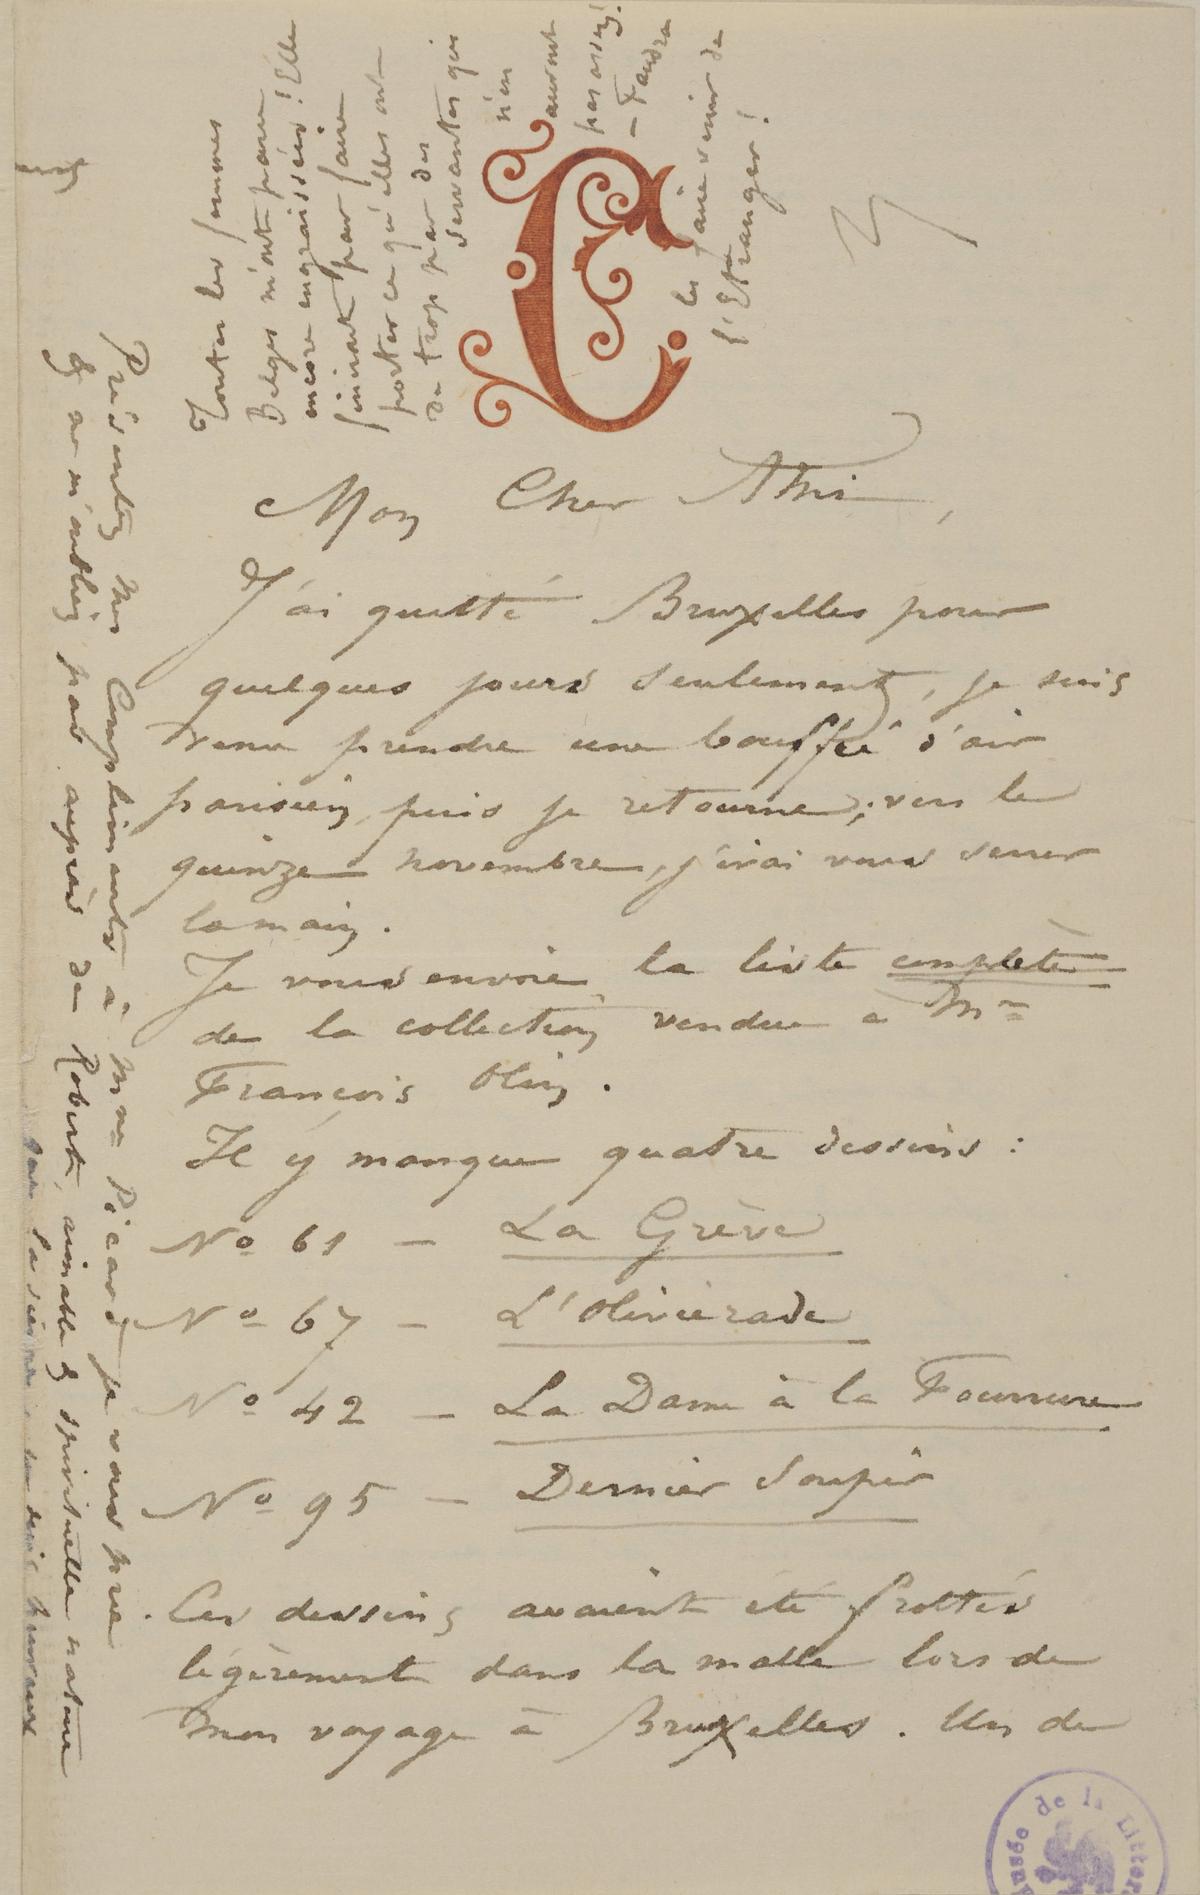 Toutes les femmes
Belges m'ont paru
encore engraissées! Elles
finiront par faire
porter ce qu'elles ont
de trop par des
servantes qui
n'en
auront
pas assez!
— Faudra
les faire venir de
l'Etranger!
C
Mon Cher Ami,
J'ai quitté Bruxelles pour
quelques jours seulement, je suis
venu prendre une bouffée d'air
parisien, puis je retourne; vers le
quinze novembre, j'irai vous serrer
la main.
Je vous envoie la liste complète
de la collection vendue à Mme
François Olin.
Il y manque quatre dessins :
No 61 — La Grève
No 67 — L'Oliviérade
No 42 — La Dame à la Fourrure
No 95 — Dernier Soupir
Ces dessins avaient été frottés
légèrement dans la malle lors de
mon voyage à Bruxelles. Un de
Présentez mes Compliments à Mme Picard je vous prie
& ne m'oubliez pas auprès de Robert, aimable & spirituelle nature
Musée de la Littér